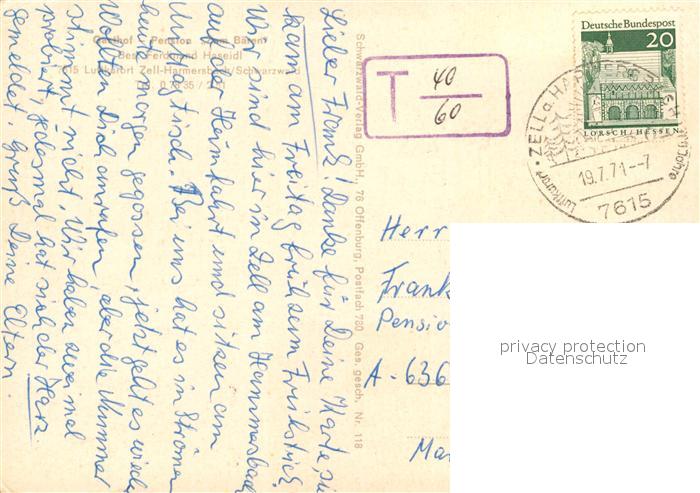 Gasthof - Pension "zum Bären"
Bes. Ferdinand Haseidl
7615 Luftkurort Zell-Harmersbach/Schwarzwald
Tel. 0 78 35 / 2 1
Lieber Frank! Danke für Deine Karte, sie
kam am Freitag früh zum Frühstück.
Wir sind hier in Zell am Hammersbach
auf der Heimfahrt und sitzen am
Mittagstisch. Bei uns hat es in Strömen
heute morgen gegossen, jetzt geht es wieder.
Wollten Dich anrufen, aber die Nummer
stimmt nicht. Wir haben zweimal
probiert, jedesmal hat sich der Harz
gemeldet. Gruß Deine Eltern.
Schwarzwald-Verlag GmbH., 76 Offenburg, Postfach 780 Ges. gesch. Nr. 118
T 40
60
Deutsche Bundespost
20
LORSCH/HESSEN
ZELL a. HARMERSBACH
Luftkurort
Jahre
19.7.71--7
7615
Herr
Frank
Pensio
A-636
Ma
privacy protection
Datenschutz